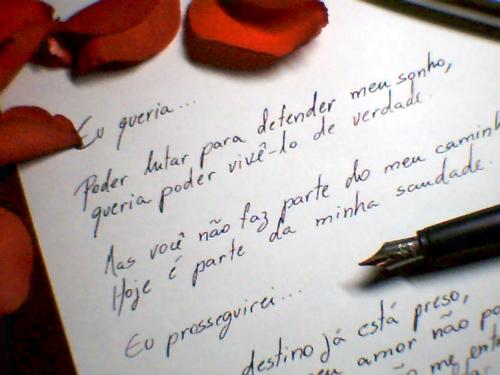 Eu queria...
Poder lutar para defender meu sonho,
queria poder vivê-lo de verdade.
Mas você não faz parte do meu caminh
Hoje é parte da minha saudade.
Eu prosseguirei...
destino já está preso,
eu amor não po
me ent